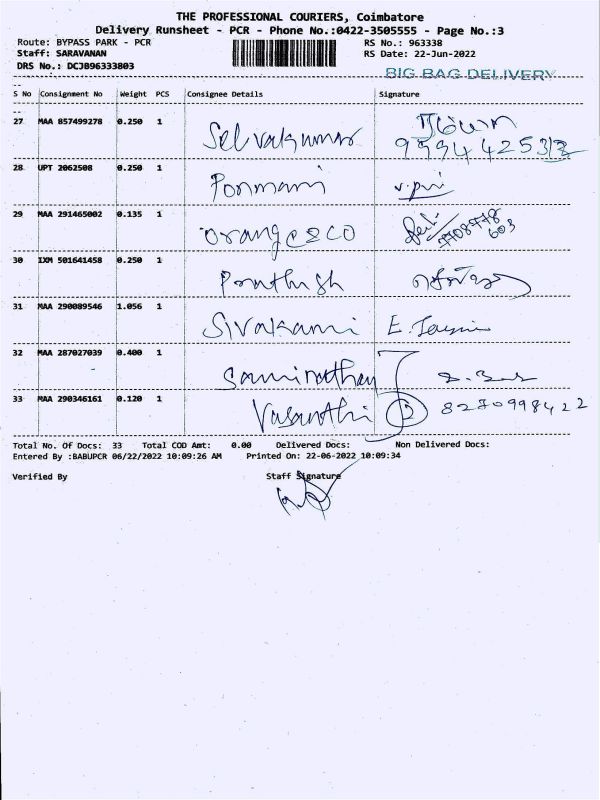 THE PROFESSIONAL COURIERS, Coimbatore
Delivery Runsheet - PCR - Phone No.:0422-3505555 - Page No.:3
Route: BYPASS PARK - PCR RS No.: 963338
Staff: SARAVANAN RS Date: 22-Jun-2022
DRS No.: DCJB96333803 BIG BAG DELIVERY
S No Consignment No Weight PCS Consignee Details Signature
27 MAA 857499278 0.250 1 Selvakumar
28 UPT 2062508 0.250 1 Ponmani
29 MAA 291465002 0.135 1 Orange & co 9708778
603
30 IXM 501641458 0.250 1
31 MAA 290089546 1.056 1 Sivakami E.
32 MAA 287027039 0.400 1
33 MAA 290346161 0.120 1 Vasanthi 2 8270998422
Total No. Of Docs: 33 Total COD Amt: 0.00 Delivered Docs: Non Delivered Docs:
Entered By :BABUPCR 06/22/2022 10:09:26 AM Printed On: 22-06-2022 10:09:34
Verified By Staff Signature